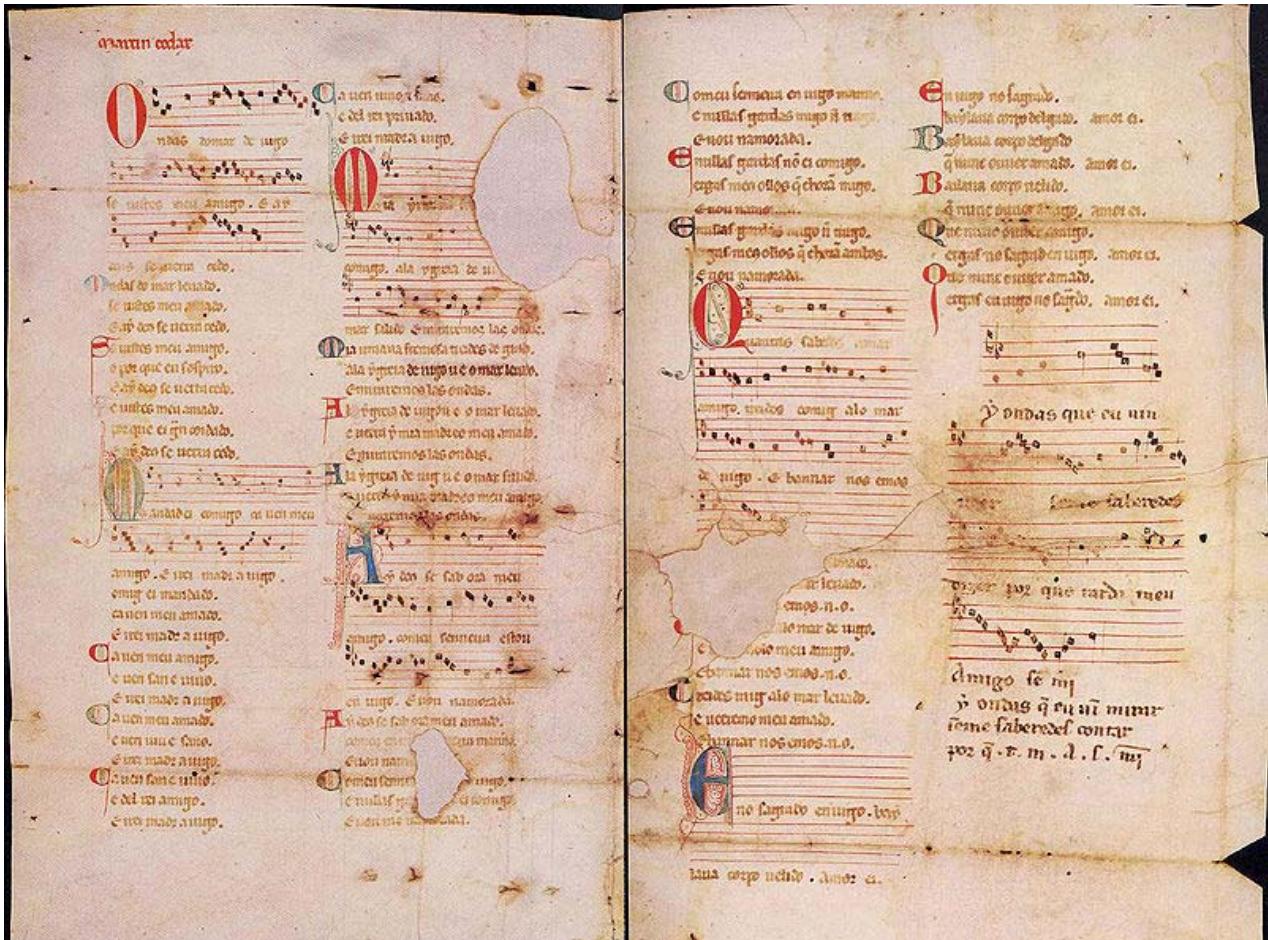 Martin codax
Ondas domar de uigo
se uistes meu amigo. E ay
deus se uerra cedo.
Ondas do mar leuado.
se uistes meu amado.
E ay deus se uerra cedo.
Se uistes meu amigo.
o por que eu sospiro.
E ay deus se uerra cedo.
Se uistes meu amado.
por que ei gran coidado.
E ay deus se uerra cedo.
Mandad ei comigo ca uen meu
amigo. E irei madr a uigo.
Comig ei mandado.
ca uen meu amado.
E irei madr a uigo.
Ca uen meu amigo.
e uen san e uiuo.
E irei madr a uigo.
Ca uen meu amado.
e uen uiu e sano.
E irei madr a uigo.
Ca uen san e uiuo.
e del rei amigo.
E irei madr a uigo.
Ca uen uiu e sano.
e del rei priuado.
E irei madr a uigo.
Mia yrmana
comigo. ala ygreia de ui
mar salido E miraremos las ondas.
Mia irmana fremosa treides de grado.
ala ygreia de uigo u e o mar leuado.
E miraremos las ondas.
A la ygreia de uigo u e o mar leuado.
e uerra y mia madre o meu amado.
E miraremos las ondas.
A la ygreia de uig u e o mar salido.
e uerra y mia madre o meu amigo
E miraremos las ondas.
Ay deus se sab ora meu
amigo. com eu senneira estou
en uigo. E uou namorada.
Ay deus se sab ora meu amado.
com eu en uigo manno.
E uou nam
Com eu senn uigo.
e nullas g ei comigo.
E uou na morada.
Com eu senneira en uigo manno.
e nullas gardas migo
E uou namorada.
E nullas gardas non ei comigo.
ergas meus ollos q choran migo.
E uou nam
E nullas gardas migo n trago.
ergas meus ollos q choran ambos.
E uou namorada.
Quantas sabedes amar
amigo. treides comig alo mar
de uigo. E bannar nos emos
amado.
ar leuado.
emos.n.o.
alo mar de uigo.
e meu amigo.
E bannar nos emos.n.o.
Treides mig alo mar leuado.
e ueeremo meu amado.
E bannar nos emos.n.o.
Eno sagrado en uigo. bay
laua corpo uelido. amor ei.
En uigo no sagrado.
baylaua corpo delgado. amor ei.
Baylaua corpo delgado
q nunc ouuer amado. amor ei.
Bailaua corpo uelido.
q nunc ouuer amigo. amor ei.
Que nunc ouuer amigo.
ergas no sagrad en uigo. amor ei.
Que nunc ouuer amado.
ergas en uigo no sagrado. amor ei.
y ondas que eu uin
ueer se me saberedes
dizer por que tarda meu
Amigo se mi
y ondas q eu ui mirar
se me saberedes contar
por q . t . m . A . s . mi